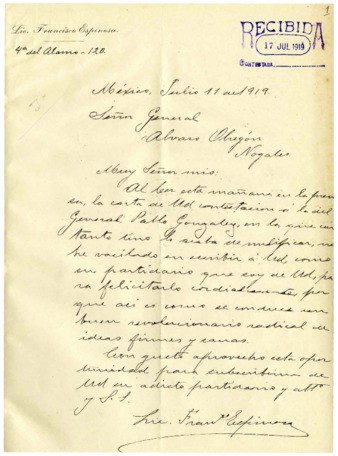 Lic. Francisco Espinosa.
4ª del Alamo - 120.
1
RECIBIDA
17 JUL 1919
CONTESTADA
México, Julio 11 de 1919.
Señor General
Alvaro Obregón
Nogales
Muy Señor mio:
Al leer esta mañana en la pren
sa, la carta de Ud contestacion á la del
General Pablo Gonzalez, en la que con
tanto tino de calificar, no
he vacilado en escribir á Ud, como
un partidario que soy de Ud, pa
ra felicitarlo cordialmente por
que asi es como se conduce un
buen revolucionario radical de
ideas firmes y sanas.
Con gusto aprovecho esta opor
tunidad para subscribirme de
Ud su adicto partidario y attº
y S.S.
Lic. Franº Espinosa